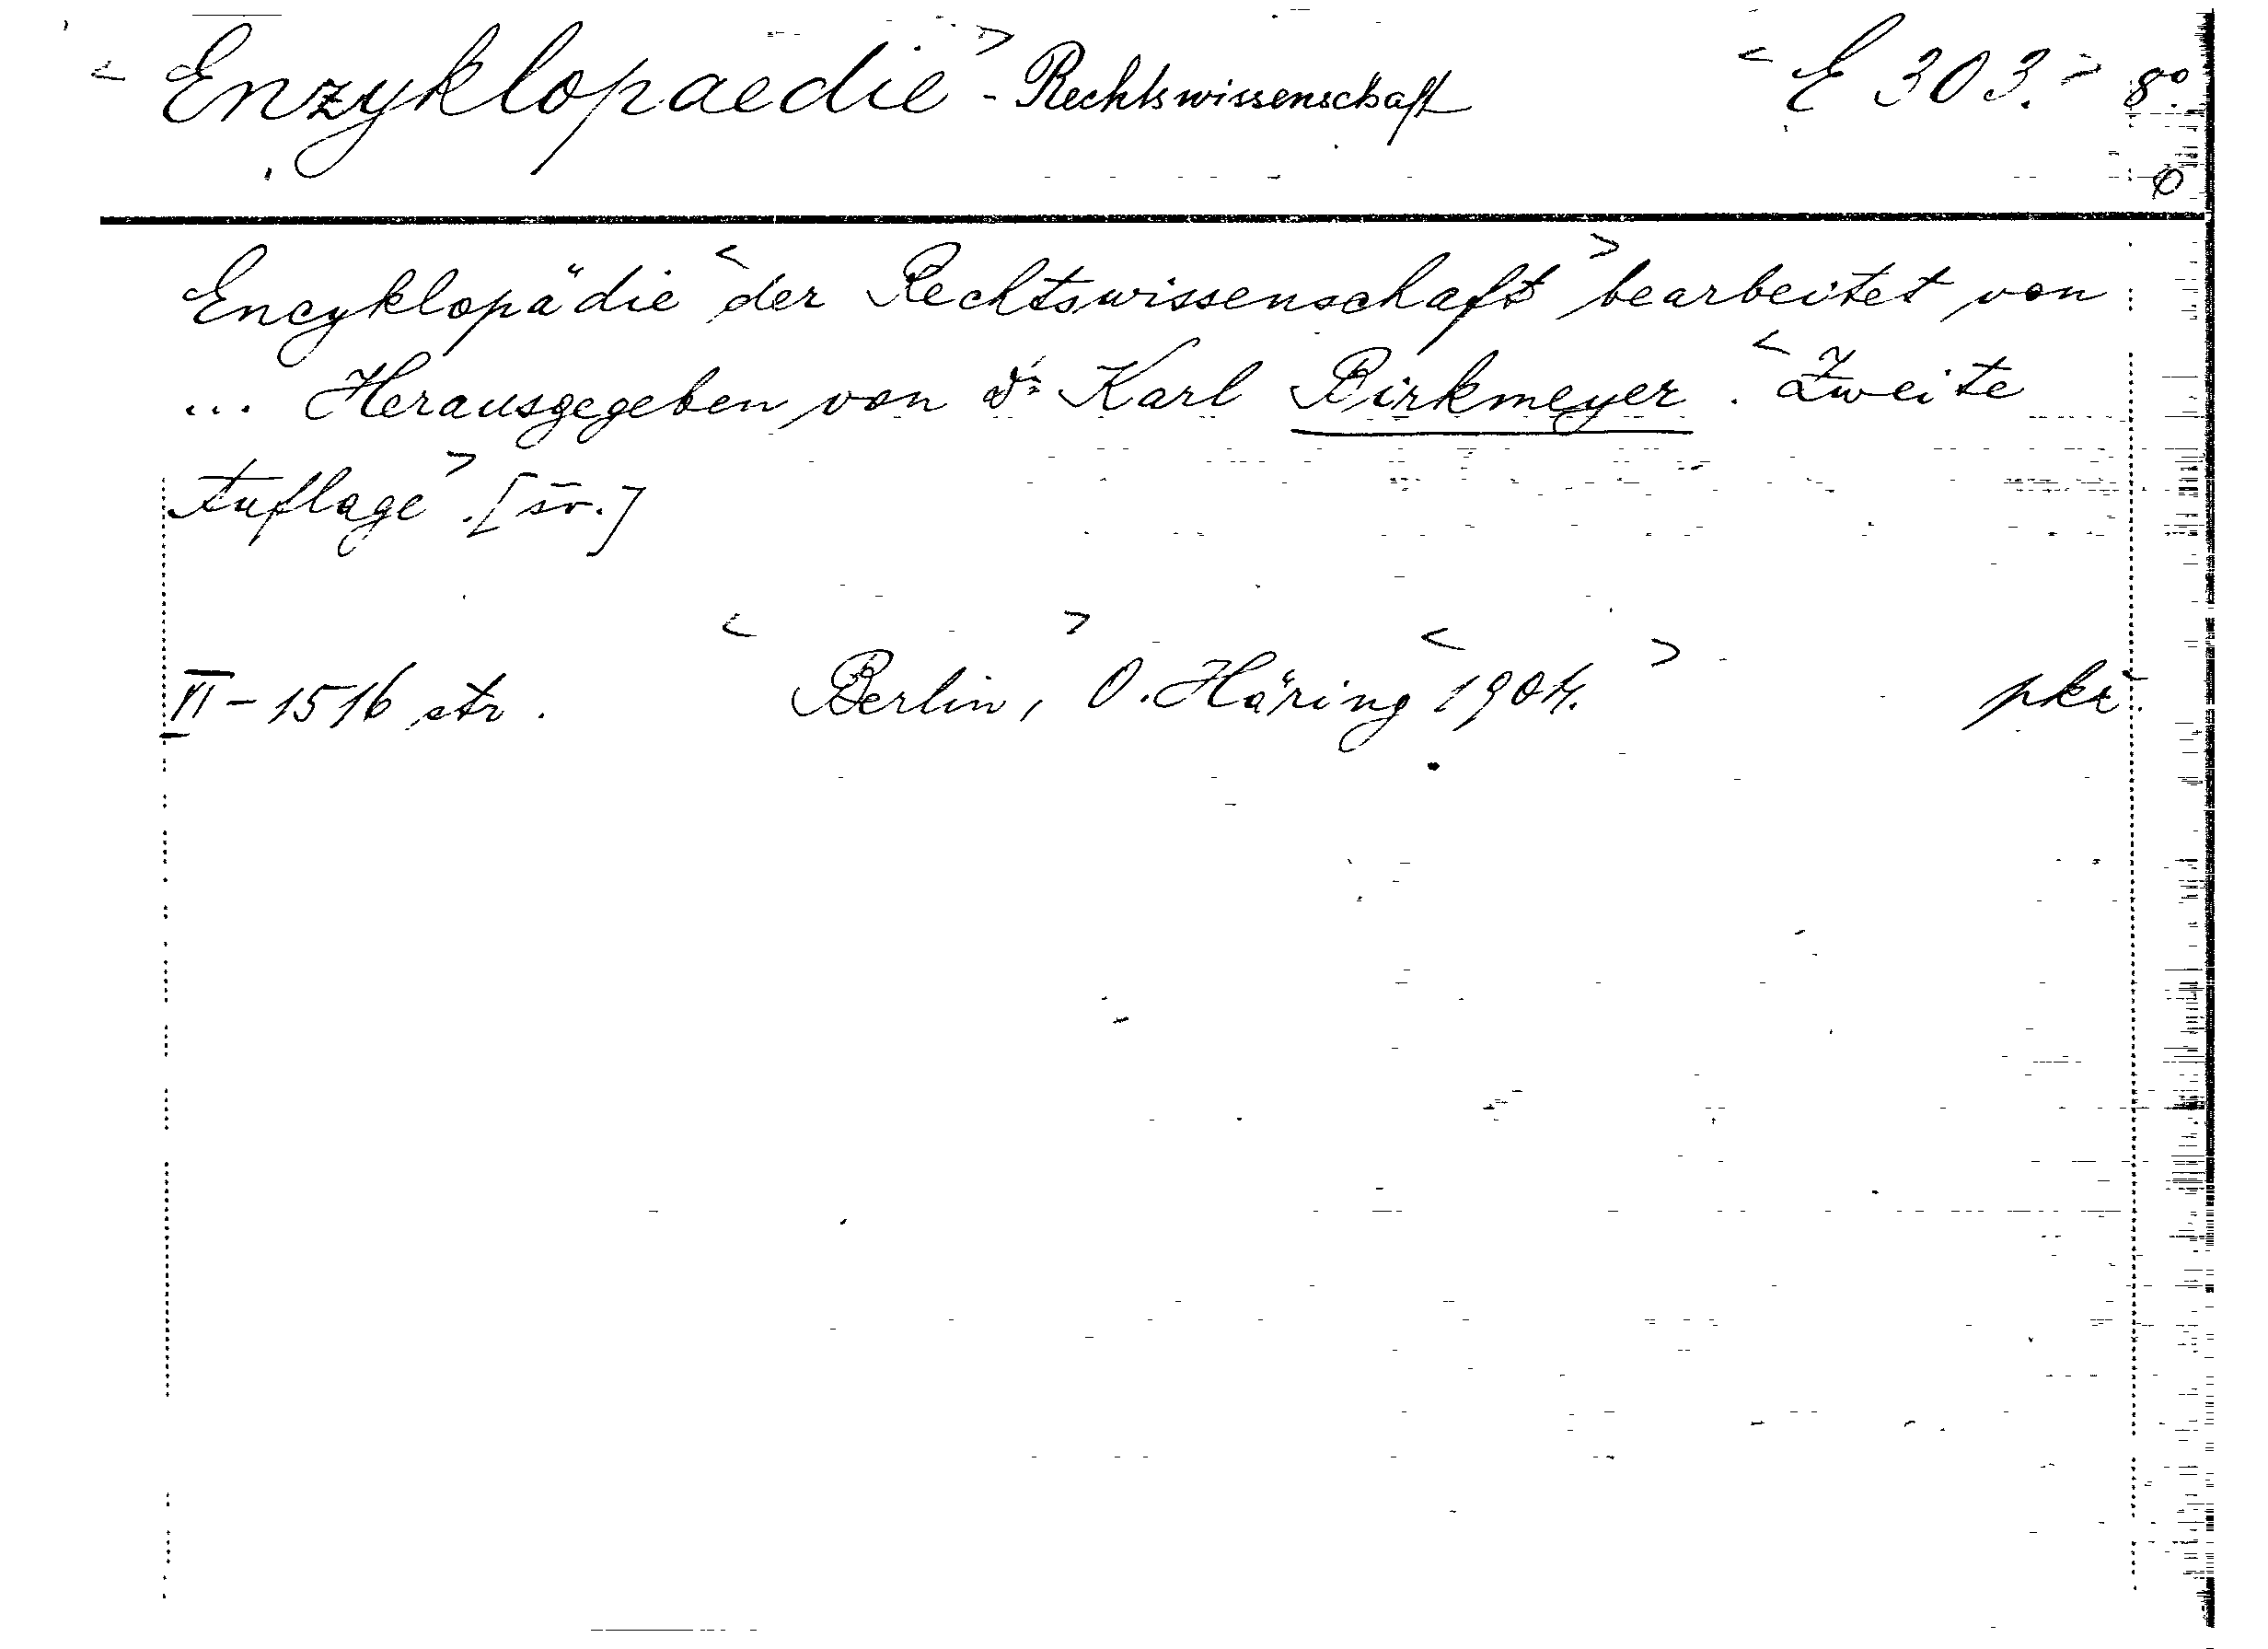 < Enzyklopaedie > - Rechtswissenschaft < E 303. > 8º.
Encyklopädie < der Rechtswissenschaft > bearbeitet von
... Herausgegeben von Dr Karl Birkmeyer . < Zweite
Auflage > . [sv.]
VI - 1516 str. < Berlin, > O. Häring < 1904. >